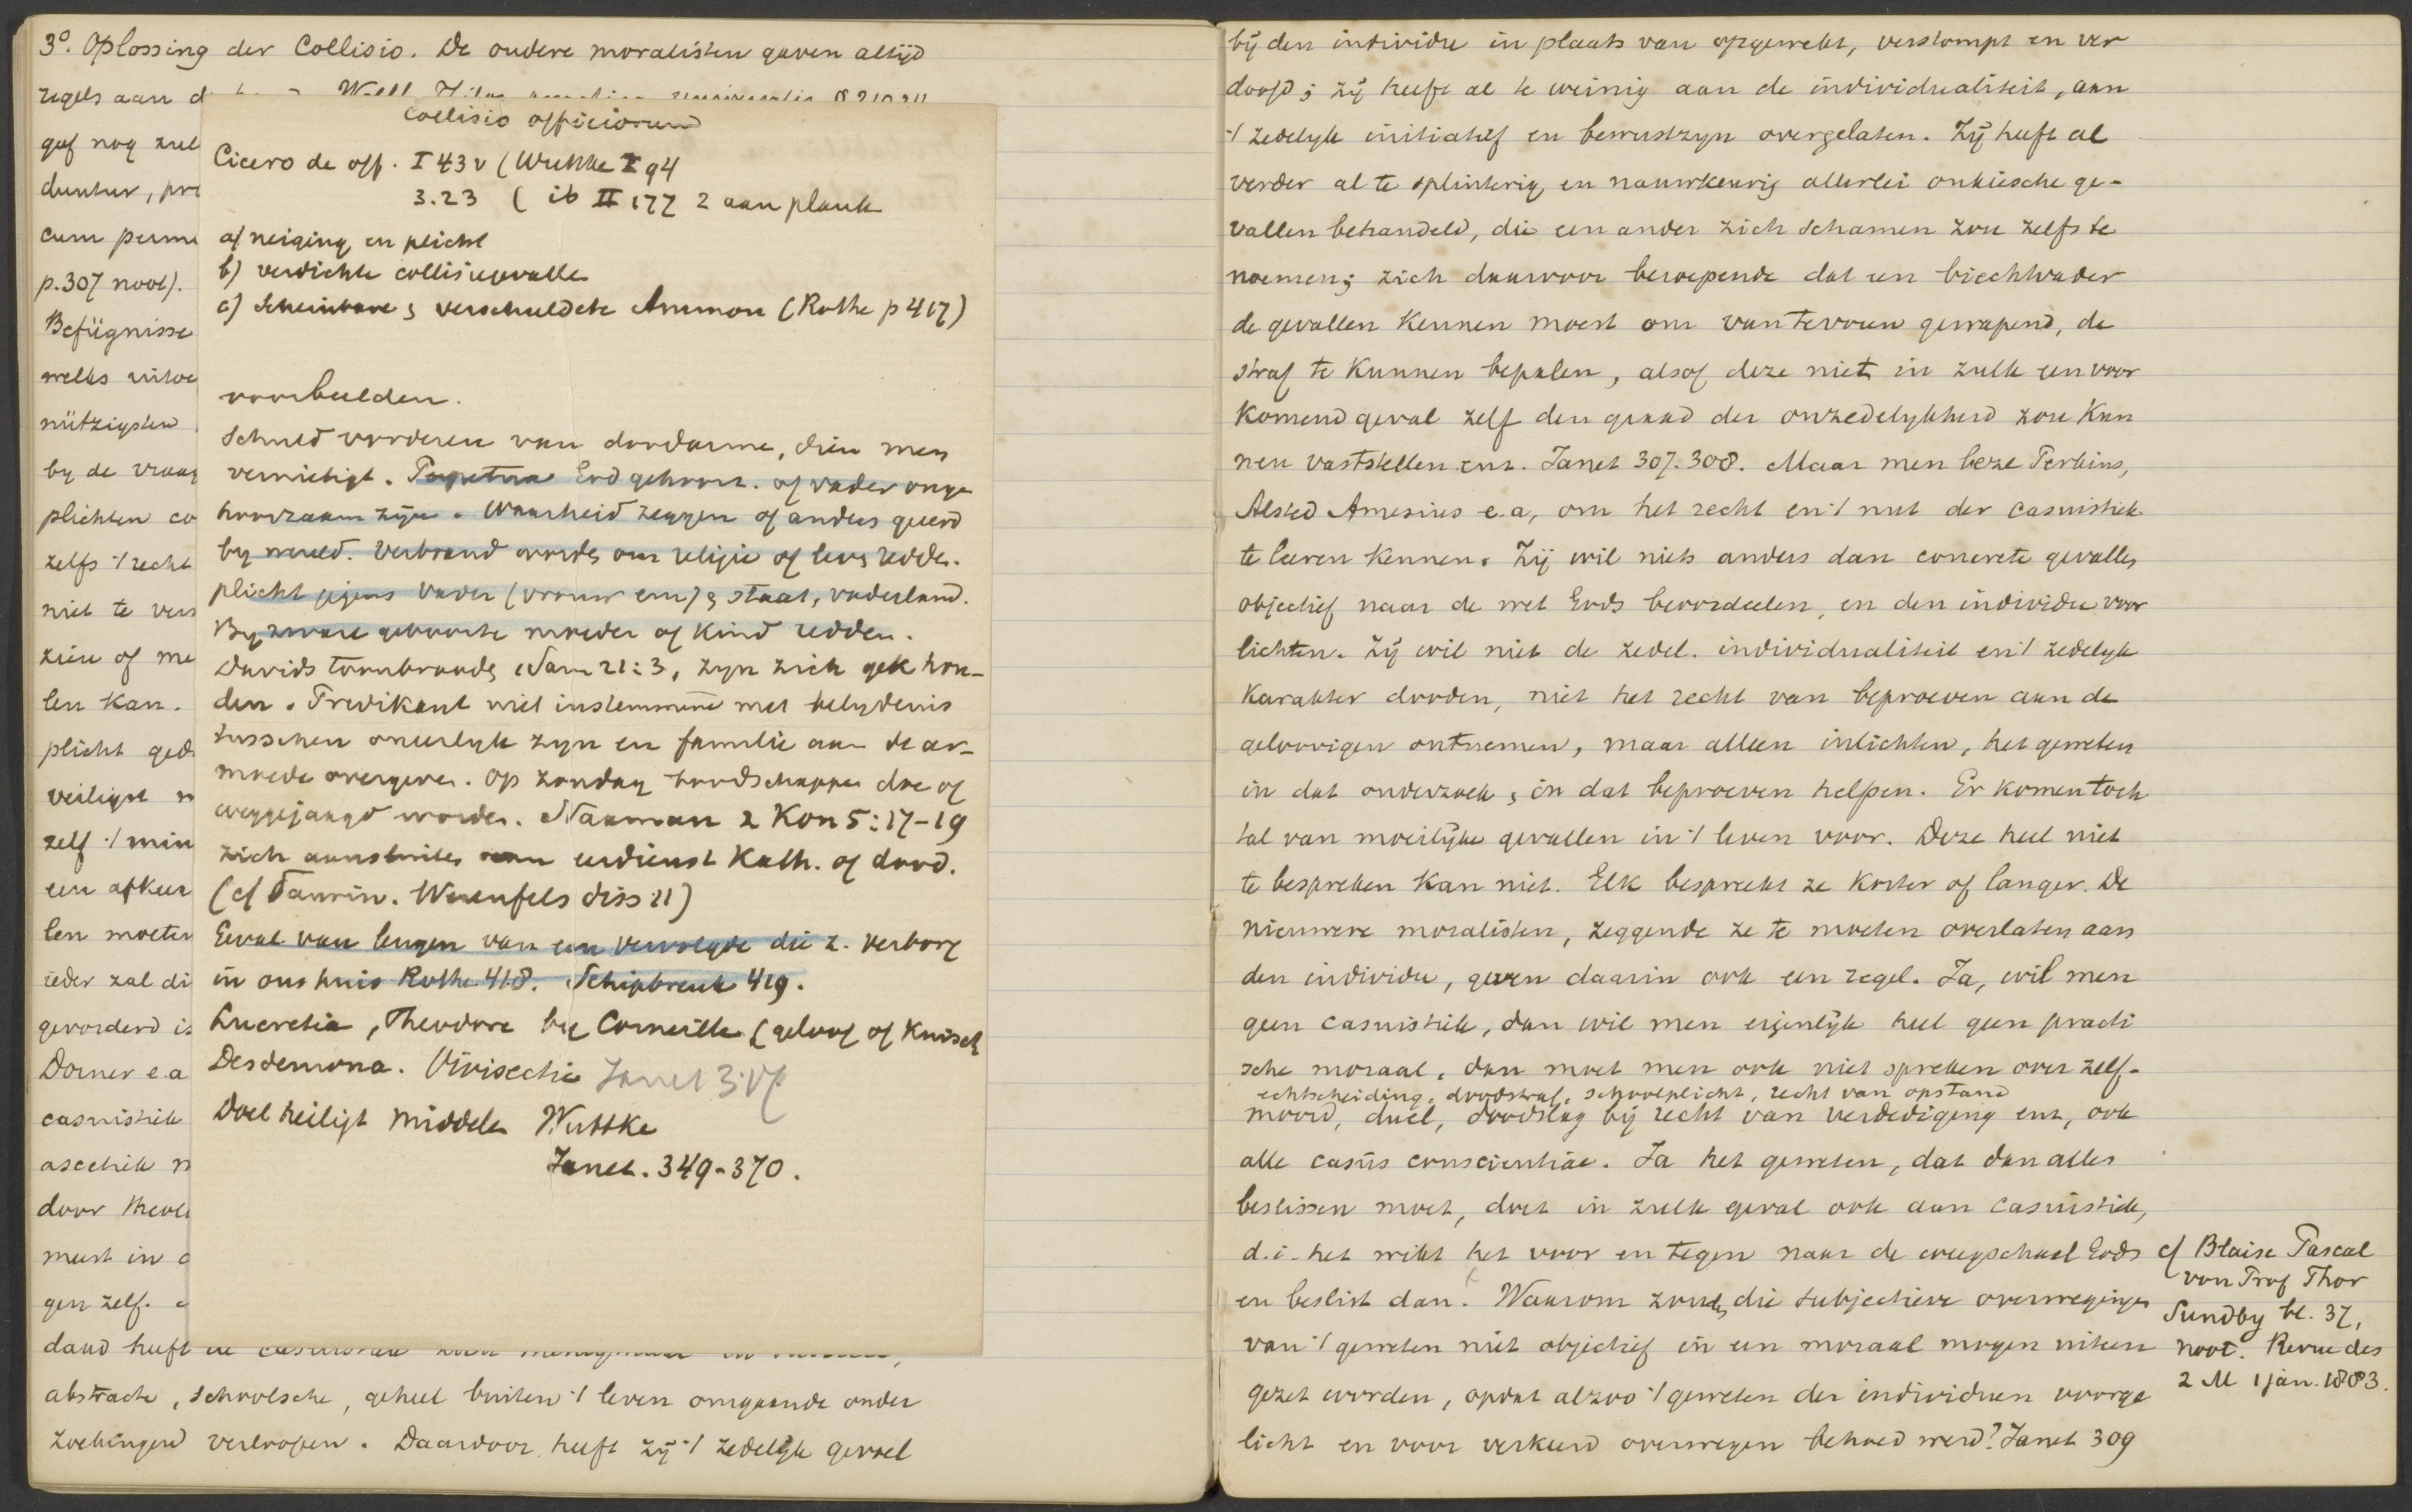 3°. Oplossing der Collisio. De oudere moralisten gaven altijd
regels aan d
gaf nog zul
duntur, pre
cum perme
p. 307 noot).
Befügnisse
welks uitoe
nützigsten
by de vraag
plichten co
zelfs 't recht
niet te vers
zien of me
len kan.
plicht ged
veiligst n
zelf 't min
een afkeu
len moeten
ieder zal di
gevorderd is
Dorner e.a
casuistiek
ascetiek n
door theol
meest in c
gen zelf.
daad heeft de casuistiek zich menigmaal in
abstracte, schoolsche, geheel buiten 't leven omgaande onder
zoekingen verloopen. Daardoor heeft zij 't zedelijk gevoel
Collisio officiorum
Cicero de off. I 43 v (Wuttke I 94
3.23 ( ib II 177 2 aan plank
a) neiging en plicht
b) verdichte collisiegevalle
c) Scheinbare & verschuldete Ammon (Rothe p 417)
voorbeelden.
Schuld vorderen van doodarme, dien men
vernietigt. Perpetua God gehoorz. of vader onge
hoorzaam zijn. Waarheid zeggen of anders gered
by wereld. Verbrand worde om religie of leve redde.
plicht jegens Vader (vrouw enz) & staat, vaderland.
By zware geboorte moeder of kind redden.
Davids toonbroode 1 Sam 21:3, zyn zich gek hou-
den. Predikant niet instemmend met belydenis
tusschen oneerlyk zyn en familie aan de ar-
moede overgeve. Op zondag boodschappen doe of
weggejaagd worde. Naaman 2 Kon 5:17-19
zich aansluite aan eerdienst Kath. of dood.
(cf Saurin. Werenfels diss 11)
Geval van leugen van een vervolgde die z. verborg
in ons huis Rothe 418. Schipbreuk 419.
Lucretia, Theodore by Corneille (geloof of kuisch
Desdemona. Vivisectie Janet 3.17
Doel heiligt middele Wuttke
Janet. 349-370.
bij den individu in plaats van opgewekt, verstompt en ver
doofd; zij heeft al te weinig aan de individualiteit, aan
't zedelyk initiatief en bewustzyn overgelaten. Zij heeft al
verder al te splinterig en nauwkeurig allerlei onkiesche ge-
vallen behandeld, die een ander zich schamen zou zelfs te
noemen; zich daarvoor beroepende dat een biechtvader
de gevallen kennen moest om van te voren gewapend, de
straf te kunnen bepalen, alsof deze niet in zulk een voor
komend geval zelf den graad der onzedelykheid zou kun
nen vaststellen enz. Janet 307. 308. Maar men leze Perkins,
Alsted Amesius e.a, om het recht en 't nut der casuistiek
te leeren kennen. Zij wil niets anders dan concrete gevalle
objectief naar de wet Gods beoordeelen, en den individu voor
lichten. Zij wil niet de zedel. individualiteit en 't zedelyk
karakter dooden, niet het recht van beproeven aan de
geloovigen ontnemen, maar alleen inlichten, het geweten
in dat onderzoek & in dat beproeven helpen. Er komen toch
tal van moeilijke gevallen in 't leven voor. Deze heel niet
te bespreken kan niet. Elk bespreekt ze korter of langer. De
nieuwere moralisten, zeggende ze te moeten overlaten aan
den individu, geven daarin ook een regel. Ja, wil men
geen casuistiek, dan wil men eigenlijk heel geen practi
sche moraal, dan moet men ook niet spreken over zelf-
echtscheiding, doodstraf, schoolplicht, recht van opstand
moord, duel, doodslag bij recht van verdediging enz, ook
alle casus conscientiae. Ja het geweten, dat dan alles
beslissen moet, doet in zulk geval ook aan casuistiek,
d.i. het wikt het voor en tegen naar de weegschaal Gods
en beslist dan. Waarom zoude die subjectieve overweginge
van 't geweten niet objectief in een moraal mogen uiteen
gezet worden, opdat alzoo 't geweten der individuen voorge
licht en voor verkeerd overwegen behoed werd? Janet 309
cf Blaise Pascal
von Prof Thor
Sundby bl. 37,
noot. Revue des
2 M 1 jan. 1883.